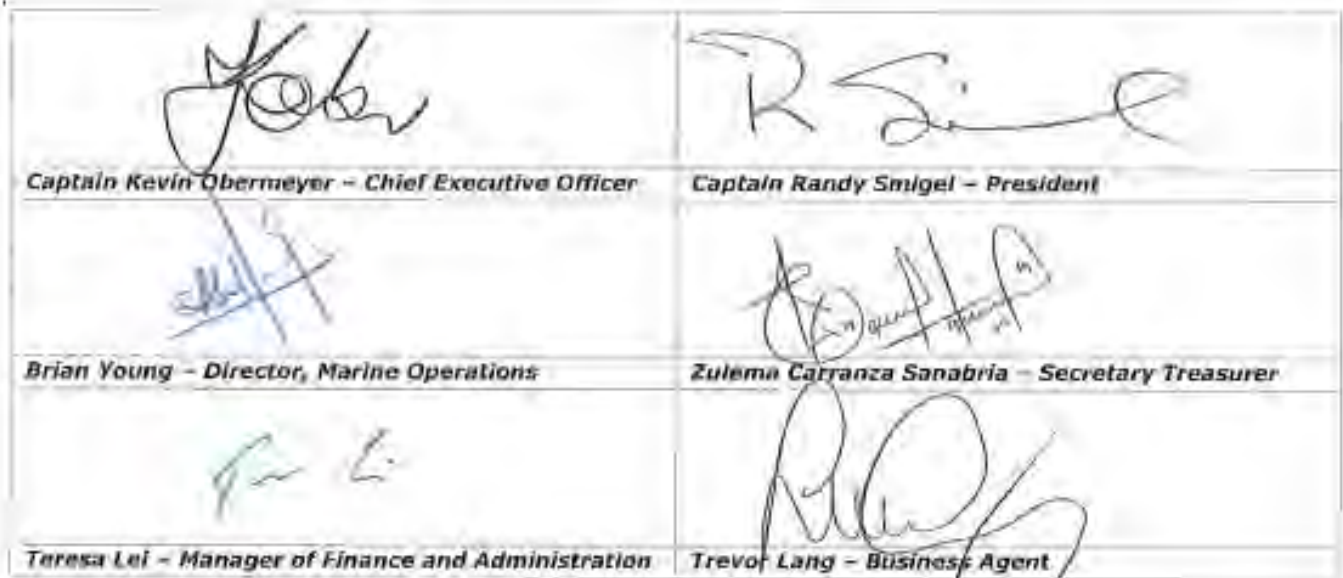 R
Captain Kevin Obermeyer – Chief Executive Officer
Captain Randy Smigel – President
Brian Young – Director, Marine Operations
Zulema Carranza Sanabria – Secretary Treasurer
Teresa Lei – Manager of Finance and Administration
Trevor Lang – Business Agent